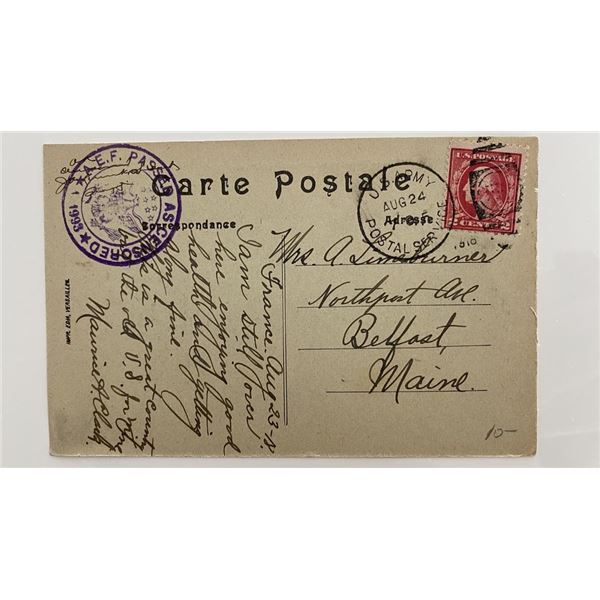 A.E.F. PASSED AS CENSORED
1998
Carte Postale
Correspondance
Adresse
U.S. ARMY
AUG 24
POSTAL SERVICE
1918
U.S. POSTAGE
2 CENTS 2
IMP. EDIA. VERSAILLES
France Aug-23-18.
I am still over
here enjoying good
health and getting
along fine.
is a great country
but the old U.S. for mine
Maurice A. Clark
Mrs. A. Limeburner
Northport Ave.
Belfast,
Maine.
10-